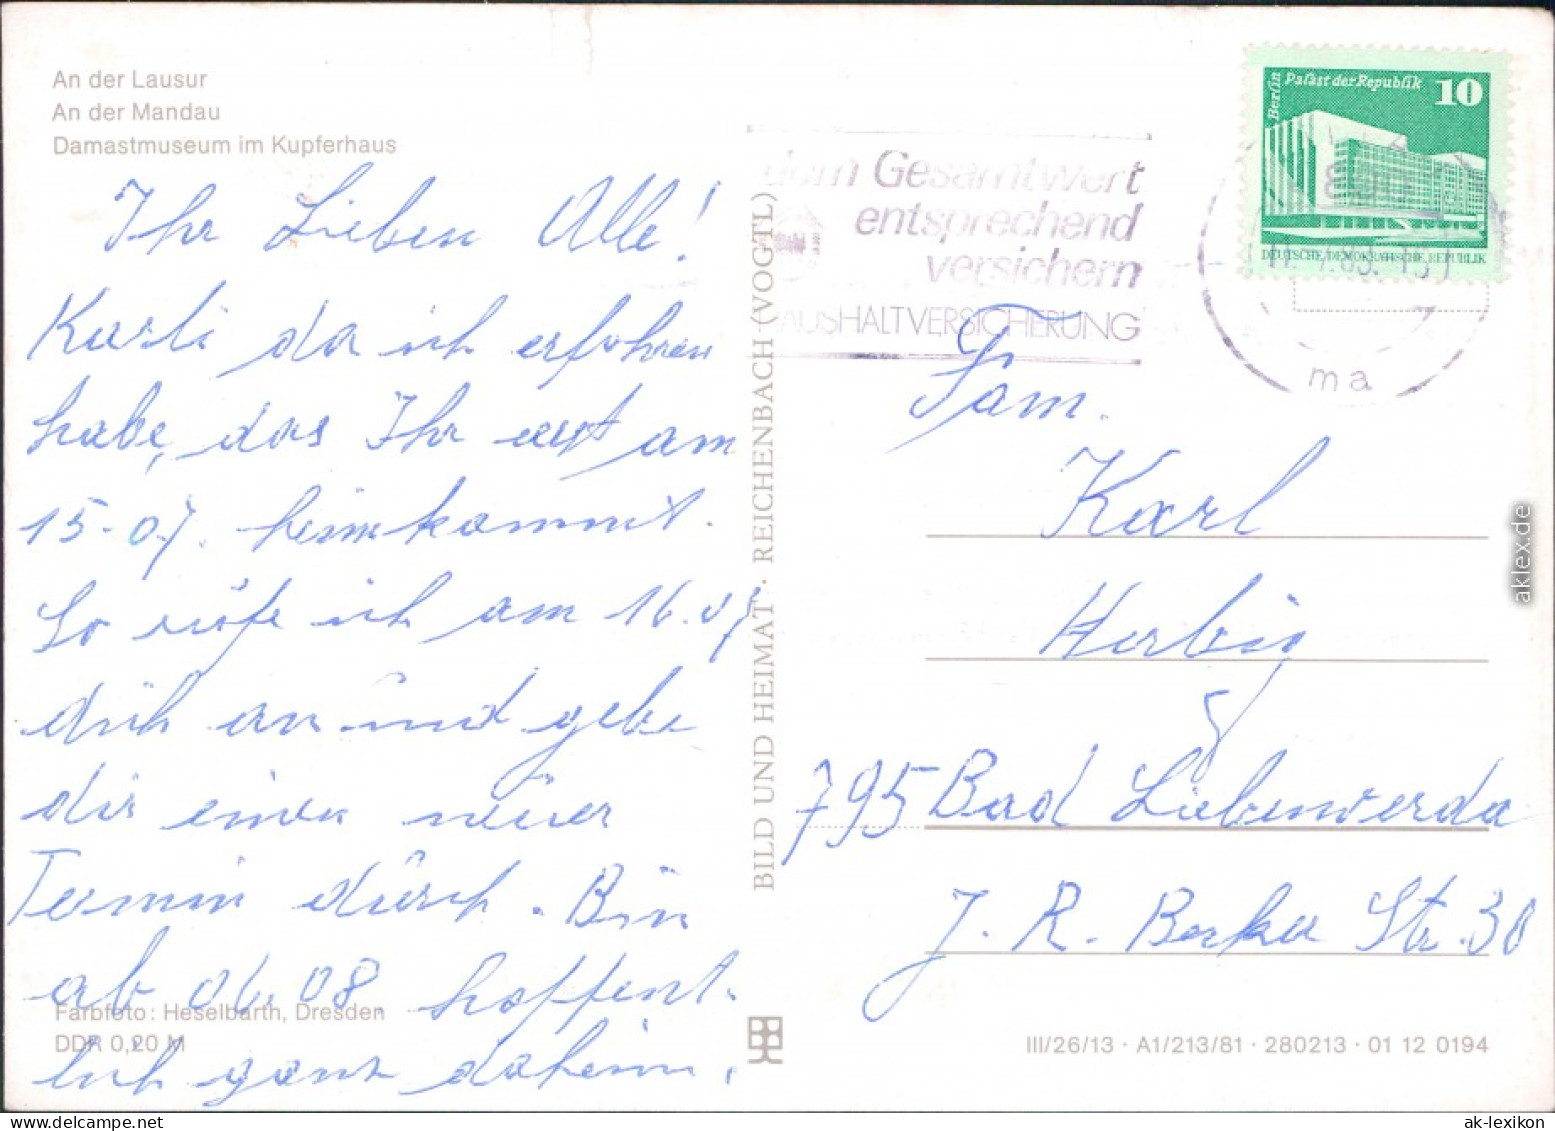 An der Lausur
An der Mandau
Damastmuseum im Kupferhaus
Ihr Lieben Alle!
Karli da ich erfahren
habe, das Ihr erst am
15.07. heimkommt.
So rufe ich am 16.07
dich an und gebe
dir einen neuer
Termin durch. Bin
ab 06.08. hoffent-
lich ganz daheim.
Farbfoto: Heselbarth, Dresden
DDR 0,20 M
BILD UND HEIMAT · REICHENBACH (VOGTL)
dem Gesamtwert
entsprechend
versichern
HAUSHALTVERSICHERUNG
Berlin
Palast der Republik
10
DEUTSCHE DEMOKRATISCHE REPUBLIK
ma
Fam.
Karl
Herbig
795 Bad Liebenwerda
J. R. Becher Str. 30
III/26/13 · A1/213/81 · 280213 · 01 12 0194
aklex.de
ak-lexikon